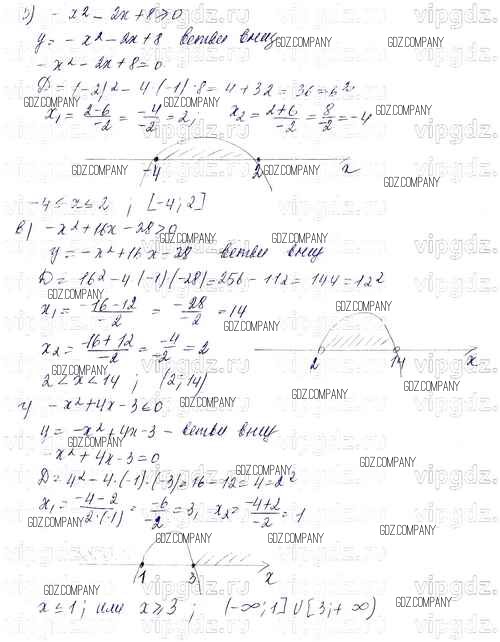 б) - x² - 2x + 8 ≥ 0
y = - x² - 2x + 8 ветви вниз
- x² - 2x + 8 = 0
D = (-2)² - 4·(-1)·8 = 4 + 32 = 36 = 6²
x₁ = (2-6)/-2 = -4/-2 = 2; x₂ = (2+6)/-2 = 8/-2 = -4
-4 2 x
-4 ≤ x ≤ 2 ; [-4; 2]
в) - x² + 16x - 28 > 0
y = - x² + 16x - 28 ветви вниз
D = 16² - 4·(-1)·(-28) = 256 - 112 = 144 = 12²
x₁ = (-16-12)/-2 = -28/-2 = 14
x₂ = (-16+12)/-2 = -4/-2 = 2
2 14 x
2 < x < 14 ; (2; 14)
г) - x² + 4x - 3 ≤ 0
y = - x² + 4x - 3 - ветви вниз
- x² + 4x - 3 = 0
D = 4² - 4·(-1)·(-3) = 16 - 12 = 4 = 2²
x₁ = (-4-2)/2·(-1) = -6/-2 = 3, x₂ = (-4+2)/-2 = 1
1 3 x
x ≤ 1; или x ≥ 3 ; (-∞; 1] ∪ [3; +∞)
GDZ.COMPANY
vipgdz.ru